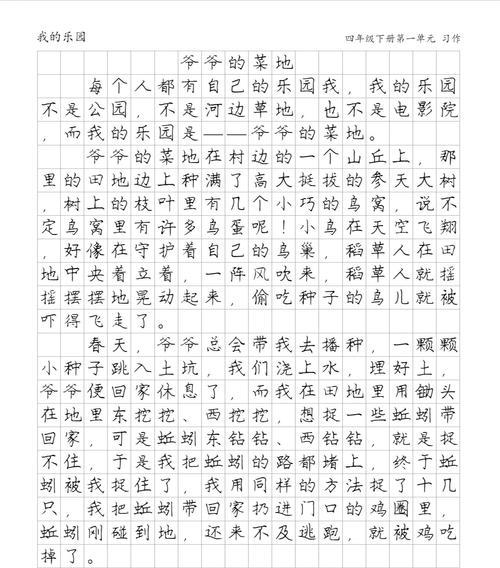 我的乐园 四年级下册第一单元 习作
爷爷的菜地
每个人都有自己的乐园我，我的乐园
不是公园，不是河边草地，也不是电影院
，而我的乐园是——爷爷的菜地。
爷爷的菜地在村边的一个山丘上，那
里的田地边上种满了高大挺拔的参天大树
，树上的枝叶里有几个小巧的鸟窝，说不
定鸟窝里有许多鸟蛋呢！小鸟在天空飞翔
，好像在守护着自己的鸟巢，稻草人在田
地中央着立着，一阵风吹来，稻草人就摇
摇摆摆地晃动起来，偷吃种子的鸟儿就被
吓得飞走了。
春天，爷爷总会带我去播种，一颗颗
小种子跳入土坑，我们浇上水，埋好土，
爷爷便回家休息了，而我在田地里用锄头
在地里东挖挖、西挖挖，想捉一些蚯蚓带
回家，可是蚯蚓东钻钻、西钻钻，就是捉
不住，于是我把蚯蚓的路都堵上，终于蚯
蚓被我捉住了，我用同样的方法捉了十几
只，我把蚯蚓带回家扔进门口的鸡圈里，
蚯蚓刚碰到地，还来不及逃跑，就被鸡吃
掉了。